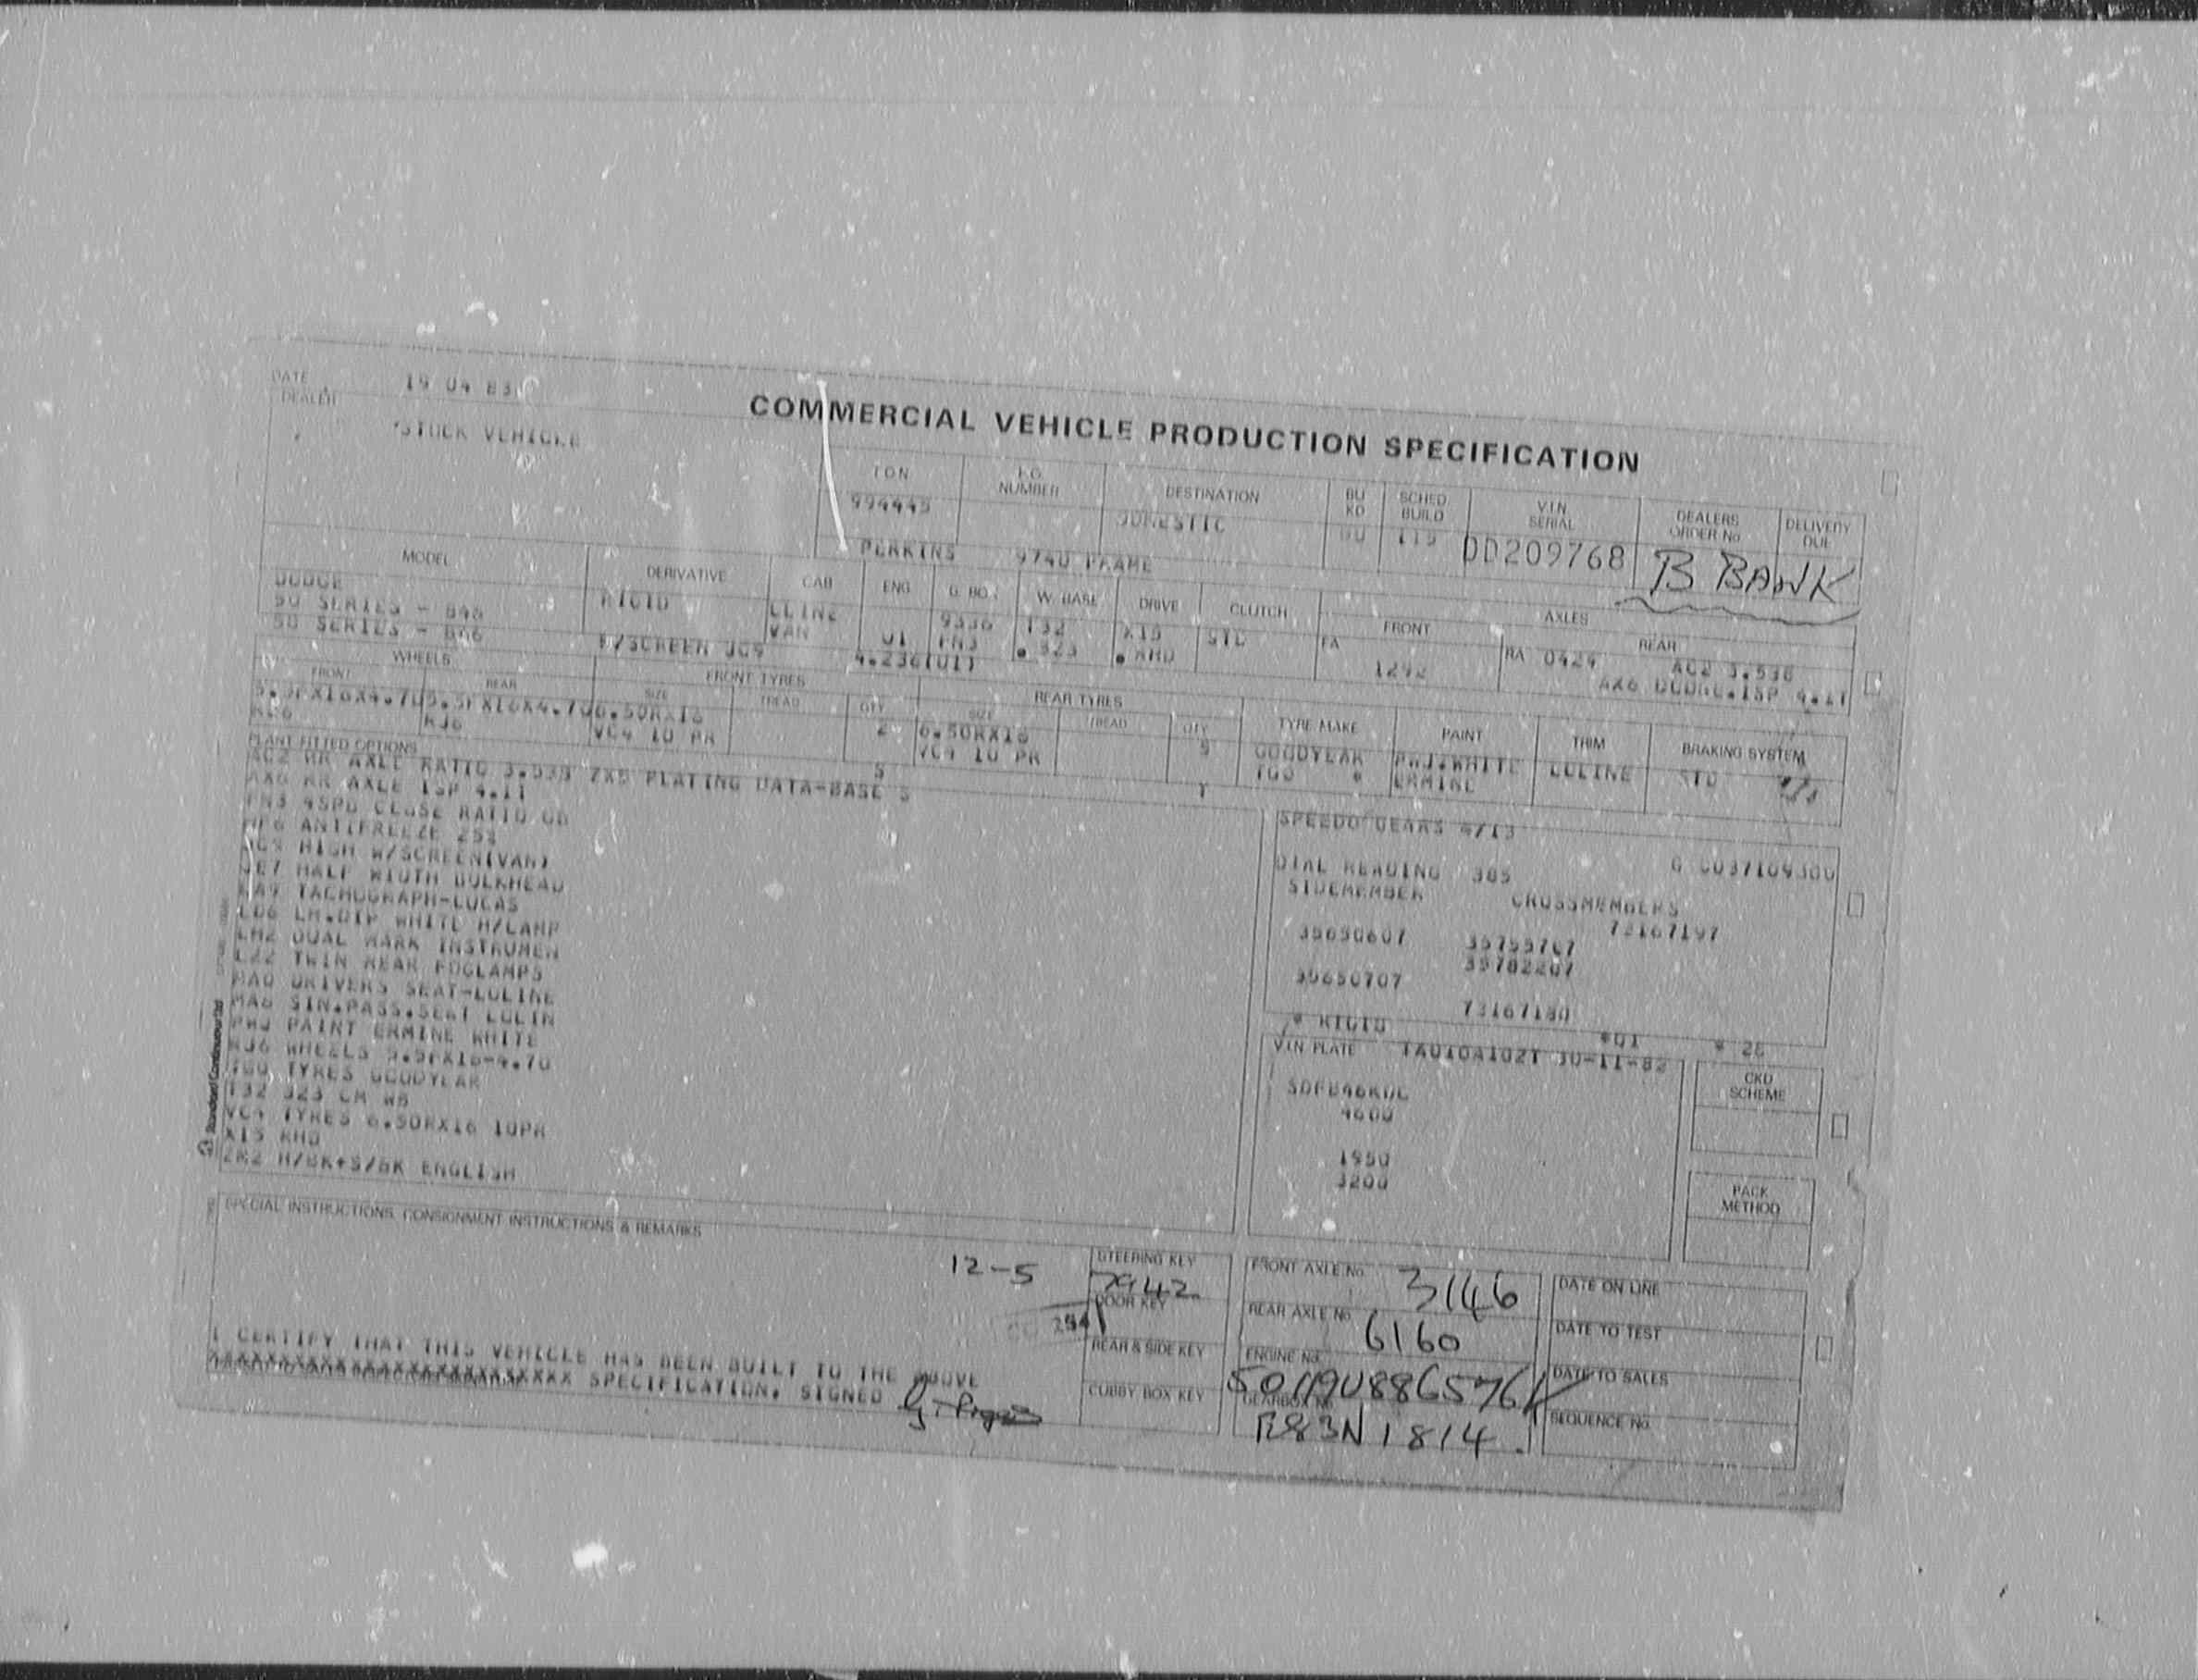 DATE 19 04 83
DEALER
STOCK VEHICLE
COMMERCIAL VEHICLE PRODUCTION SPECIFICATION
TON NUMBER DESTINATION BU KD SCHED. BUILD V.I.N. SERIAL DEALERS ORDER No DELIVERY DUE
994445 DOMESTIC BU 115 DD209768 B BANK
PERKINS 9740 FRAME
MODEL DERIVATIVE CAB ENG G. BOX W. BASE DRIVE CLUTCH FRONT AXLES REAR
DODGE RIGID LLINE 9336 T32 X15 STD FA 1292 RA 0424 AC2 3.538
50 SERIES - B46 VAN 01 FN3 . 323 . RHD AX6 DODGE.1SP 4.11
50 SERIES - B46 H/SCREEN JG9 4.236(01)
WHEELS FRONT TYRES REAR TYRES
FRONT REAR SIZE TREAD QTY SIZE TREAD QTY TYRE MAKE PAINT TRIM BRAKING SYSTEM
5.5FX16X4.70 5.5FX16X4.70 6.50RX16 2 6.50RX16 5 GOODYEAR PWJ.WHITE LOLINE STD
RJ6 RJ6 VC4 10 PR VC4 10 PR TGO ERMINE
PLANT FITTED OPTIONS
AC2 RR AXLE RATIO 3.538 ZX5 PLATING DATA-BASE S
AX6 RR AXLE 1SP 4.11
FN3 4SPD CLOSE RATIO GB
HF6 ANTIFREEZE 25%
JG9 HIGH W/SCREEN(VAN)
JE7 HALF WIDTH BULKHEAD
KA9 TACHOGRAPH-LUCAS
LD6 LH.DIP WHITE H/LAMP
LM2 DUAL MARK INSTRUMEN
LZ2 TWIN REAR FOGLAMPS
MA0 DRIVERS SEAT-LOLINE
MA6 SIN.PASS.SEAT LOLIN
PWJ PAINT ERMINE WHITE
RJ6 WHEELS 5.5FX16-4.70
TGO TYRES GOODYEAR
T32 323 CM WB
VC4 TYRES 6.50RX16 10PR
X15 RHD
ZR2 H/BK+S/BK ENGLISH
SPEEDO GEARS 4/13
DIAL READING 385 G 0037109300
SIDEMEMBER CROSSMEMBERS
73167197
35650607 35755707
35782207
35650707
73167180
* RIGID *01 * 26
V.I.N PLATE TA010A102T 30-11-82
SDFB46RDC
4600
1950
3200
CKD SCHEME
PACK METHOD
Standard Continuous Ltd
SPECIAL INSTRUCTIONS, CONSIGNMENT INSTRUCTIONS & REMARKS
12-5
STEERING KEY 7942
DOOR KEY
REAR & SIDE KEY
CUBBY BOX KEY
FRONT AXLE No. 3146
REAR AXLE No. 6160
ENGINE No.
GEARBOX No. R83N1814.
DATE ON LINE
DATE TO TEST
DATE TO SALES
SEQUENCE No.
I CERTIFY THAT THIS VEHICLE HAS BEEN BUILT TO THE ABOVE
XXXXXXXXXXXXXXXXXXXXXXXXX SPECIFICATION. SIGNED